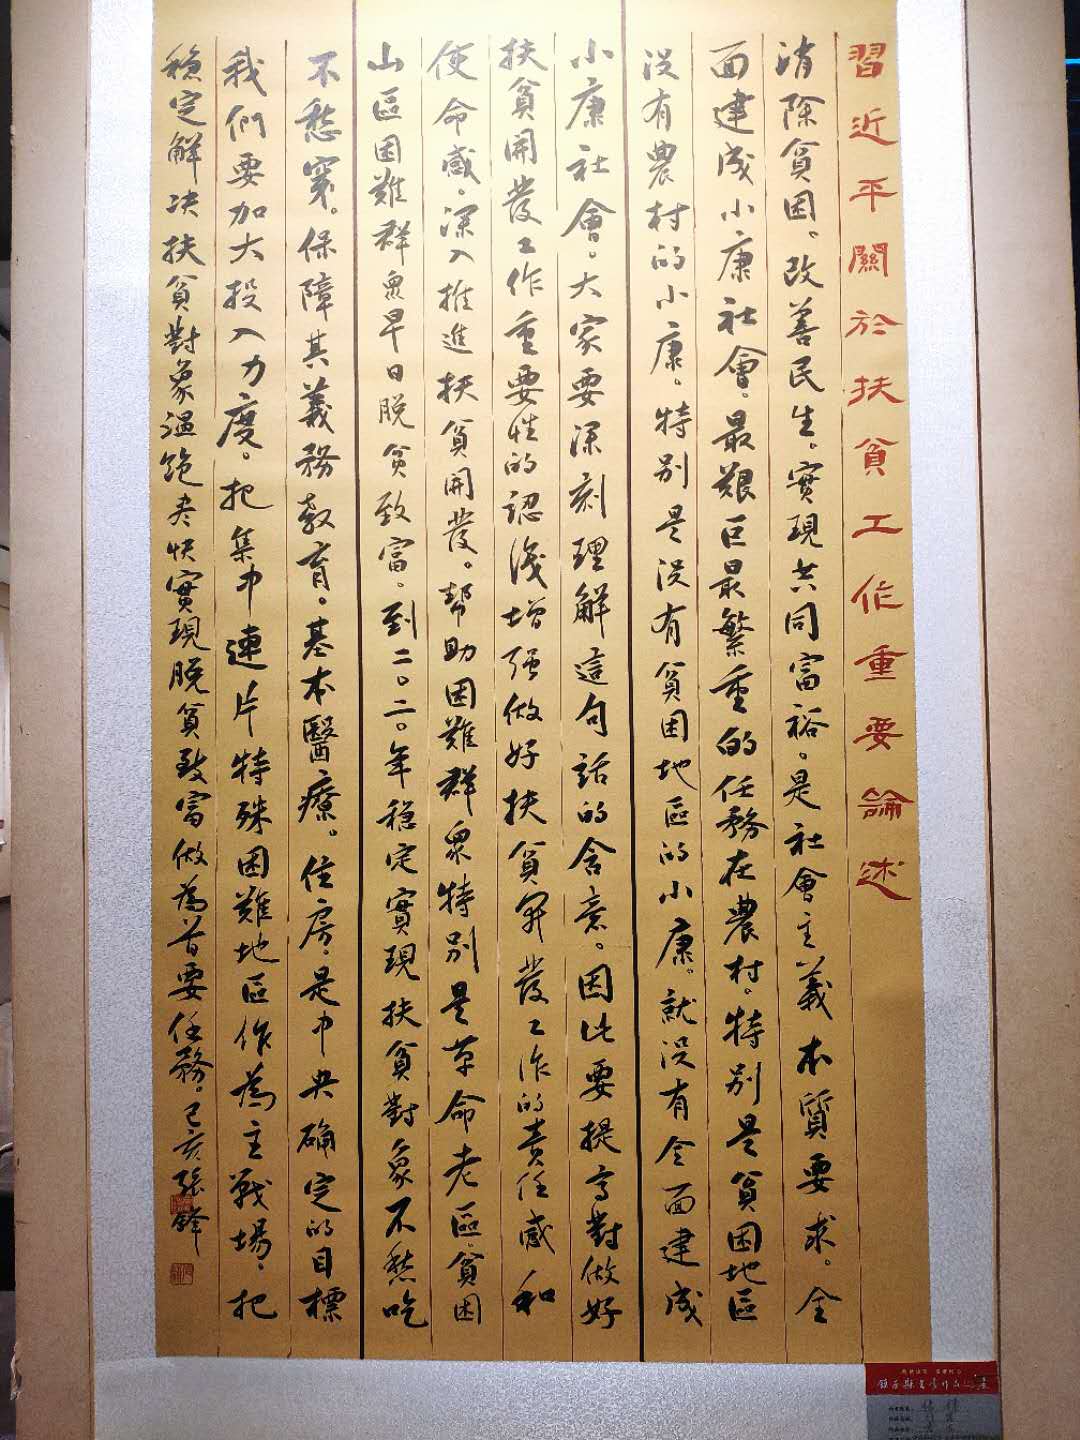 習近平關於扶貧工作重要論述
消除貧困。改善民生。實現共同富裕。是社會主義本質要求。全
面建成小康社會。最艱巨最繁重的任務在農村。特別是貧困地區
没有農村的小康。特别是没有貧困地區的小康。就没有全面建成
小康社會。大家要深刻理解這句話的含意。因此要提高對做好
扶貧開發工作重要性的認識增强做好扶貧開發工作的責任感和
使命感。深入推進扶貧開發。幫助困難群衆特别是革命老區。貧困
山區困難群衆早日脱貧致富。到二〇二〇年稳定實現扶貧對象不愁吃
不愁穿。保障其義務教育。基本醫療。住房。是中央确定的目標
我們要加大投入力度。把集中連片特殊困難地區作為主戰場。把
稳定解决扶貧對象温飽尽快實現脱貧致富做為首要任務。己亥張鋒